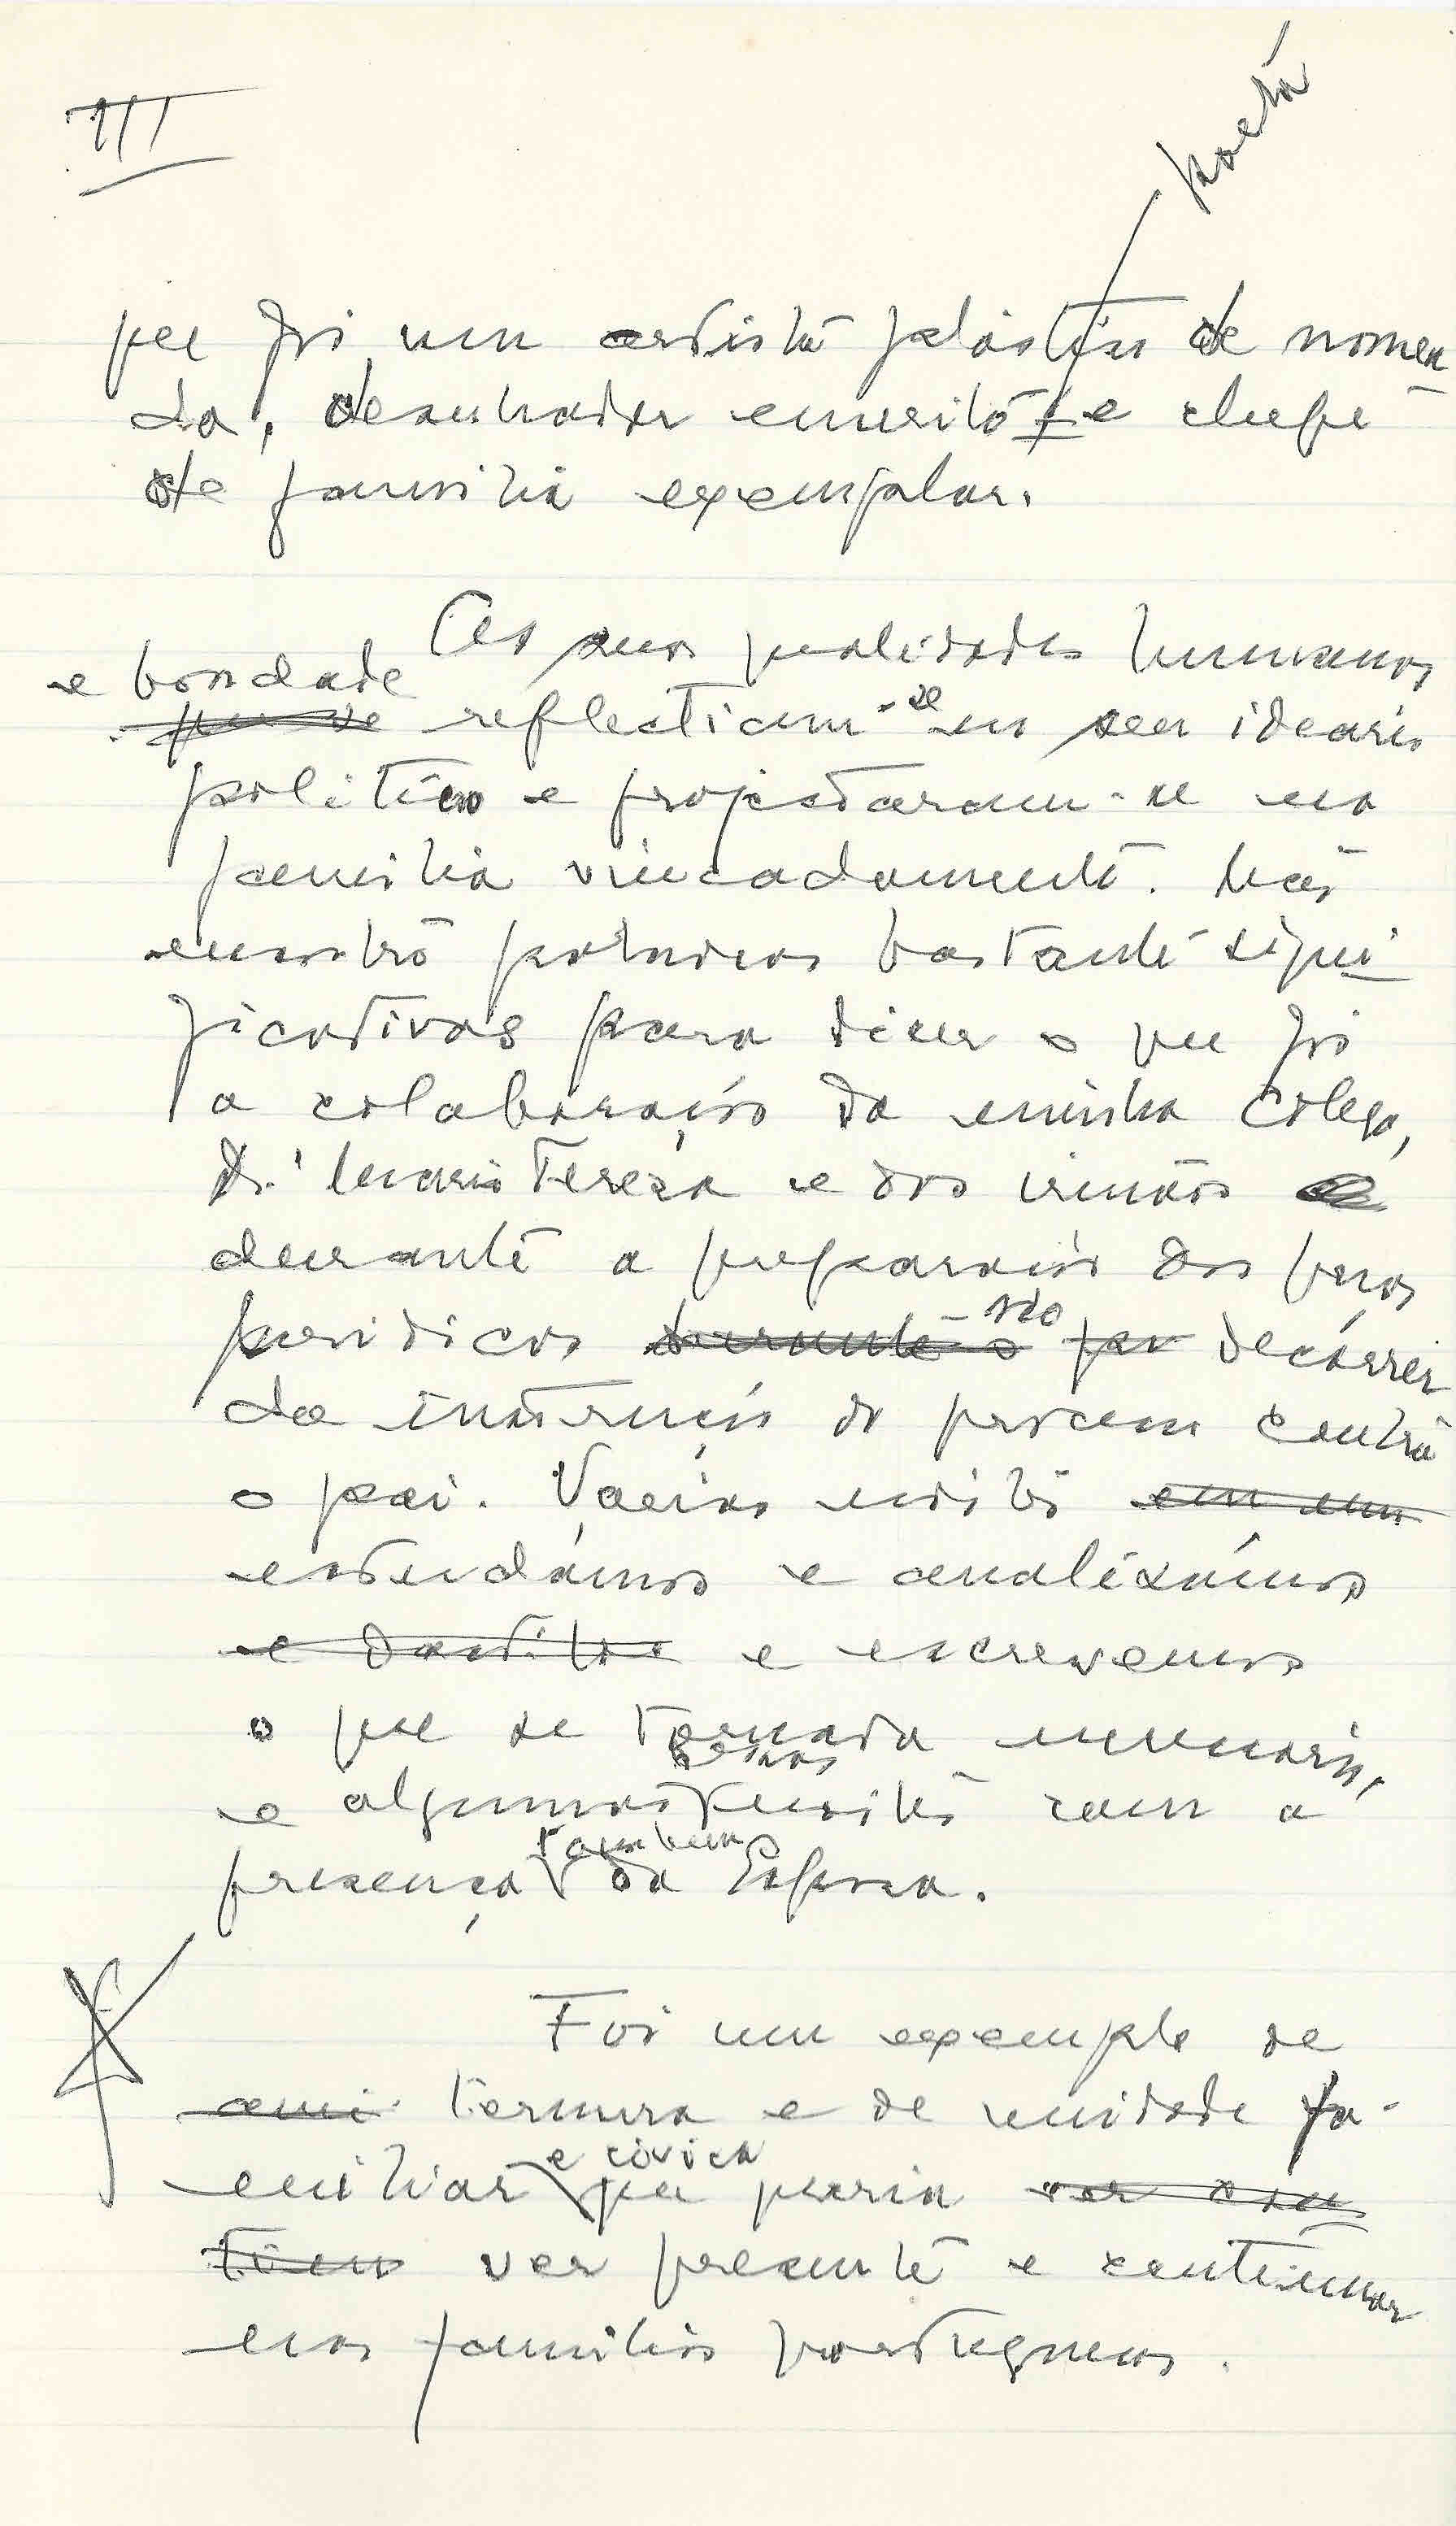 III
poeta
que foi um artista plástico de nomea
da, desenhador emérito e chefe
de familia exemplar.
As suas qualidades humanas
e bondade
que se reflectiam-se no seu ideário
politico e projectaram-se na
familia vincadamente. Não
encontro palavras bastante signi
ficativas para dizer o que foi
a colaboração da minha colega,
Drª Maria Tereza e dos irmãos
durante a preparação das peças
juridicas durante o no por decorrer
da instrução do processo contra
o pai. Várias noites em um
estudámos e analizámos
e escrevemos
o que se tornava necessário,
e algumas dessas noites com a
presença também da Esposa.
Foi um exemplo de
ami ternura e de unidade fa-
miliar e civica que queria ver con
tinu ver presente e continuar
nas familias portuguesas.